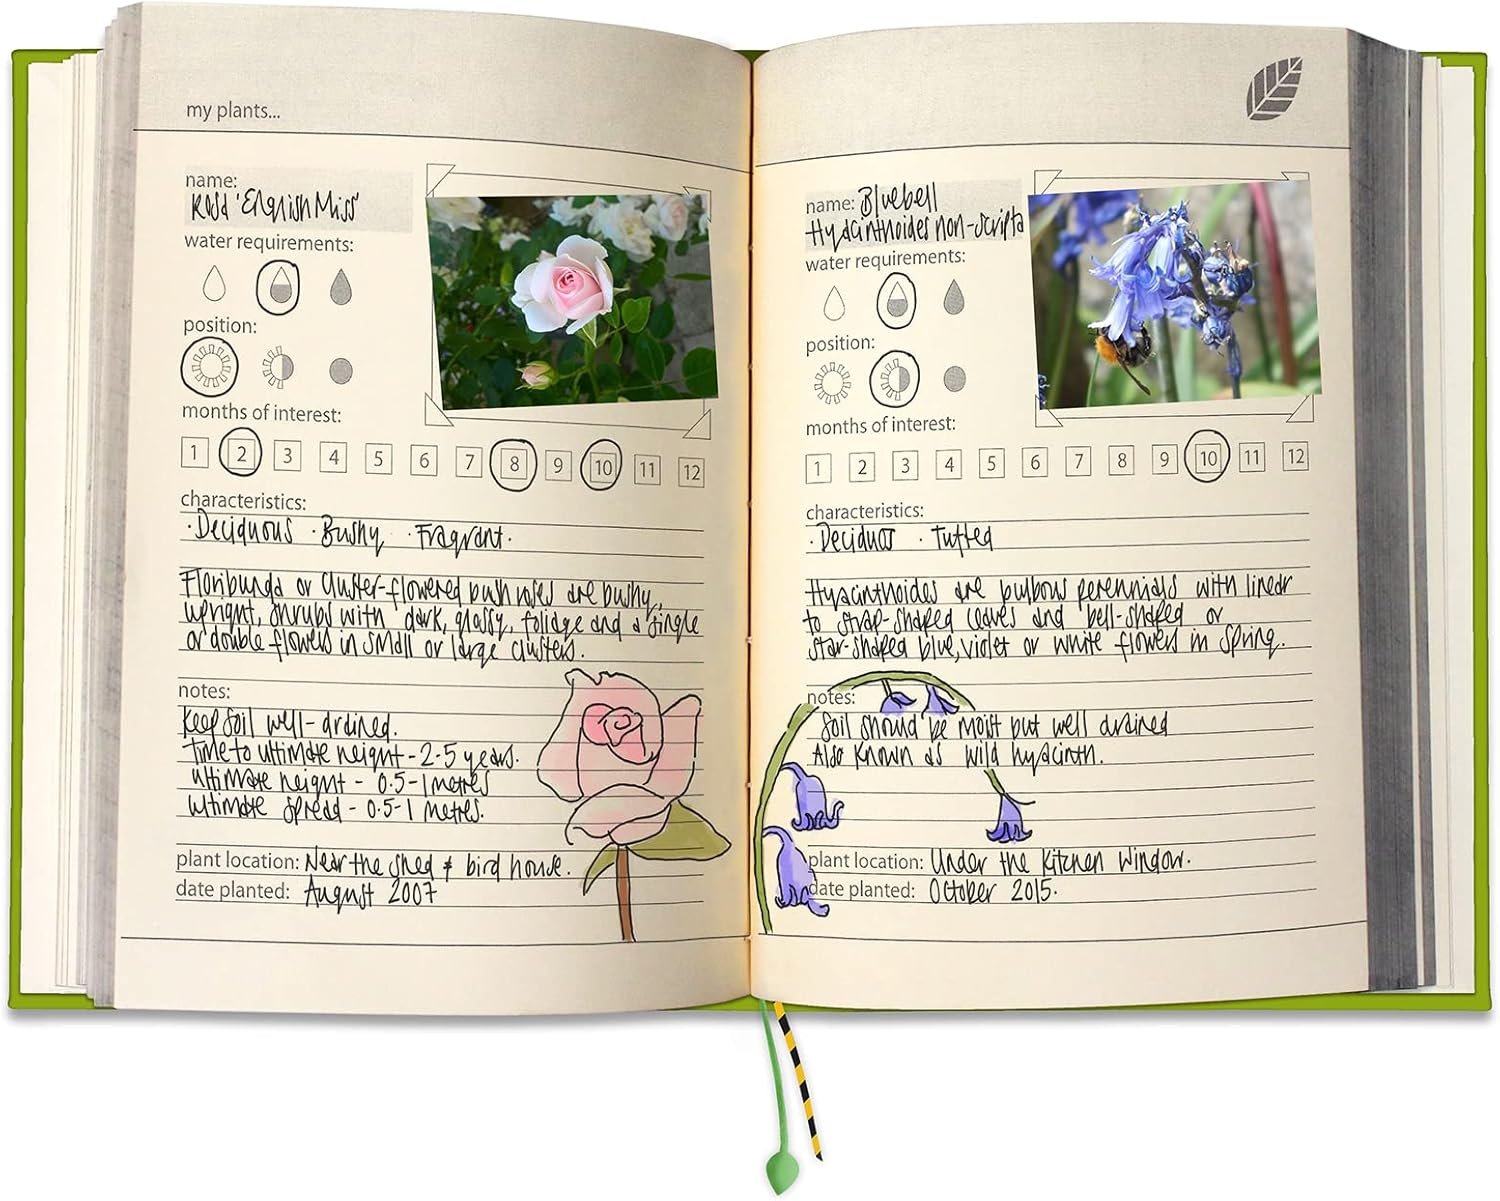 my plants...
name:
Rosa 'English Miss'
water requirements:
position:
months of interest:
1 2 3 4 5 6 7 8 9 10 11 12
characteristics:
· Deciduous · Bushy · Fragrant.
Floribunda or Cluster-flowered bush roses are bushy,
upright, shrubs with dark, glassy, foliage and a single
or double flowers in small or large clusters.
notes:
Keep soil well-drained.
Time to ultimate height - 2-5 years.
ultimate height - 0.5-1 metres
ultimate spread - 0.5-1 metres.
plant location: Near the shed & bird house.
date planted: August 2007
name: Bluebell
Hyacinthoides non-scripta
water requirements:
position:
months of interest:
1 2 3 4 5 6 7 8 9 10 11 12
characteristics:
· Deciduos · Tufted
Hyacinthoides are bulbous perennials with linear
to strap-shaped leaves and bell-shaped or
star-shaped blue, violet or white flowers in spring.
notes:
Soil should be moist but well drained
Also known as wild hyacinth.
plant location: Under the kitchen window.
date planted: October 2015.